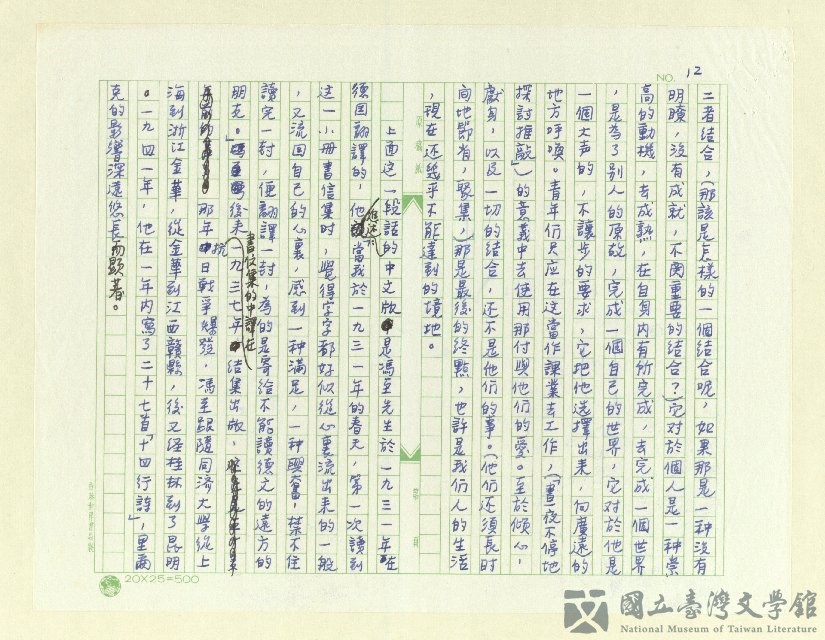 NO. 12
二者結合，（那該是怎樣的一個結合呢，如果那是一種沒有
明瞭，沒有成就，不関重要的結合？）它对於個人是一种崇
高的動機，去成熟，在自身內有所完成，去完成一個世界
，是為了別人的原故，完成一個自己的世界，它对於他是
一個大声的，不讓步的要求，它把他选擇出来，向廣遠的
地方呼喚。青年们只应在这當作課業去工作，（「晝夜不停地
探討推敲」）的意義中去使用那付與他们的愛。至於傾心，
獻身，以及一切的結合，还不是他们的事。（他们还須長时
间地節省，聚集，）那是最後的終點，也許是我们人的生活
，現在还幾乎不能達到的境地。
上面这一段話的中文版是馮至先生於一九三一年在
德国翻譯的，他當我於一九三一年的春天，第一次讀到
这一小冊書信集时，覺得字字都好似從心裏流出来的一般
，又流回自己的心裏，感到一种滿足，一种興奮，禁不住
讀完一封，便翻譯一封，為的是寄給不能讀德文的遠方的
朋友。」後来書信集的中譯在一九三七年結集出版，
那年抗日戰爭爆發，馮至跟隨同济大學從上
海到浙江金華，從金華到江西贛縣，後又経桂林到了昆明
。一九四一年，他在一年內寫了二十七首「十四行詩」，里爾
克的影響深遠悠長而顯著。
20X25=500
國立臺灣文學館
National Museum of Taiwan Literature